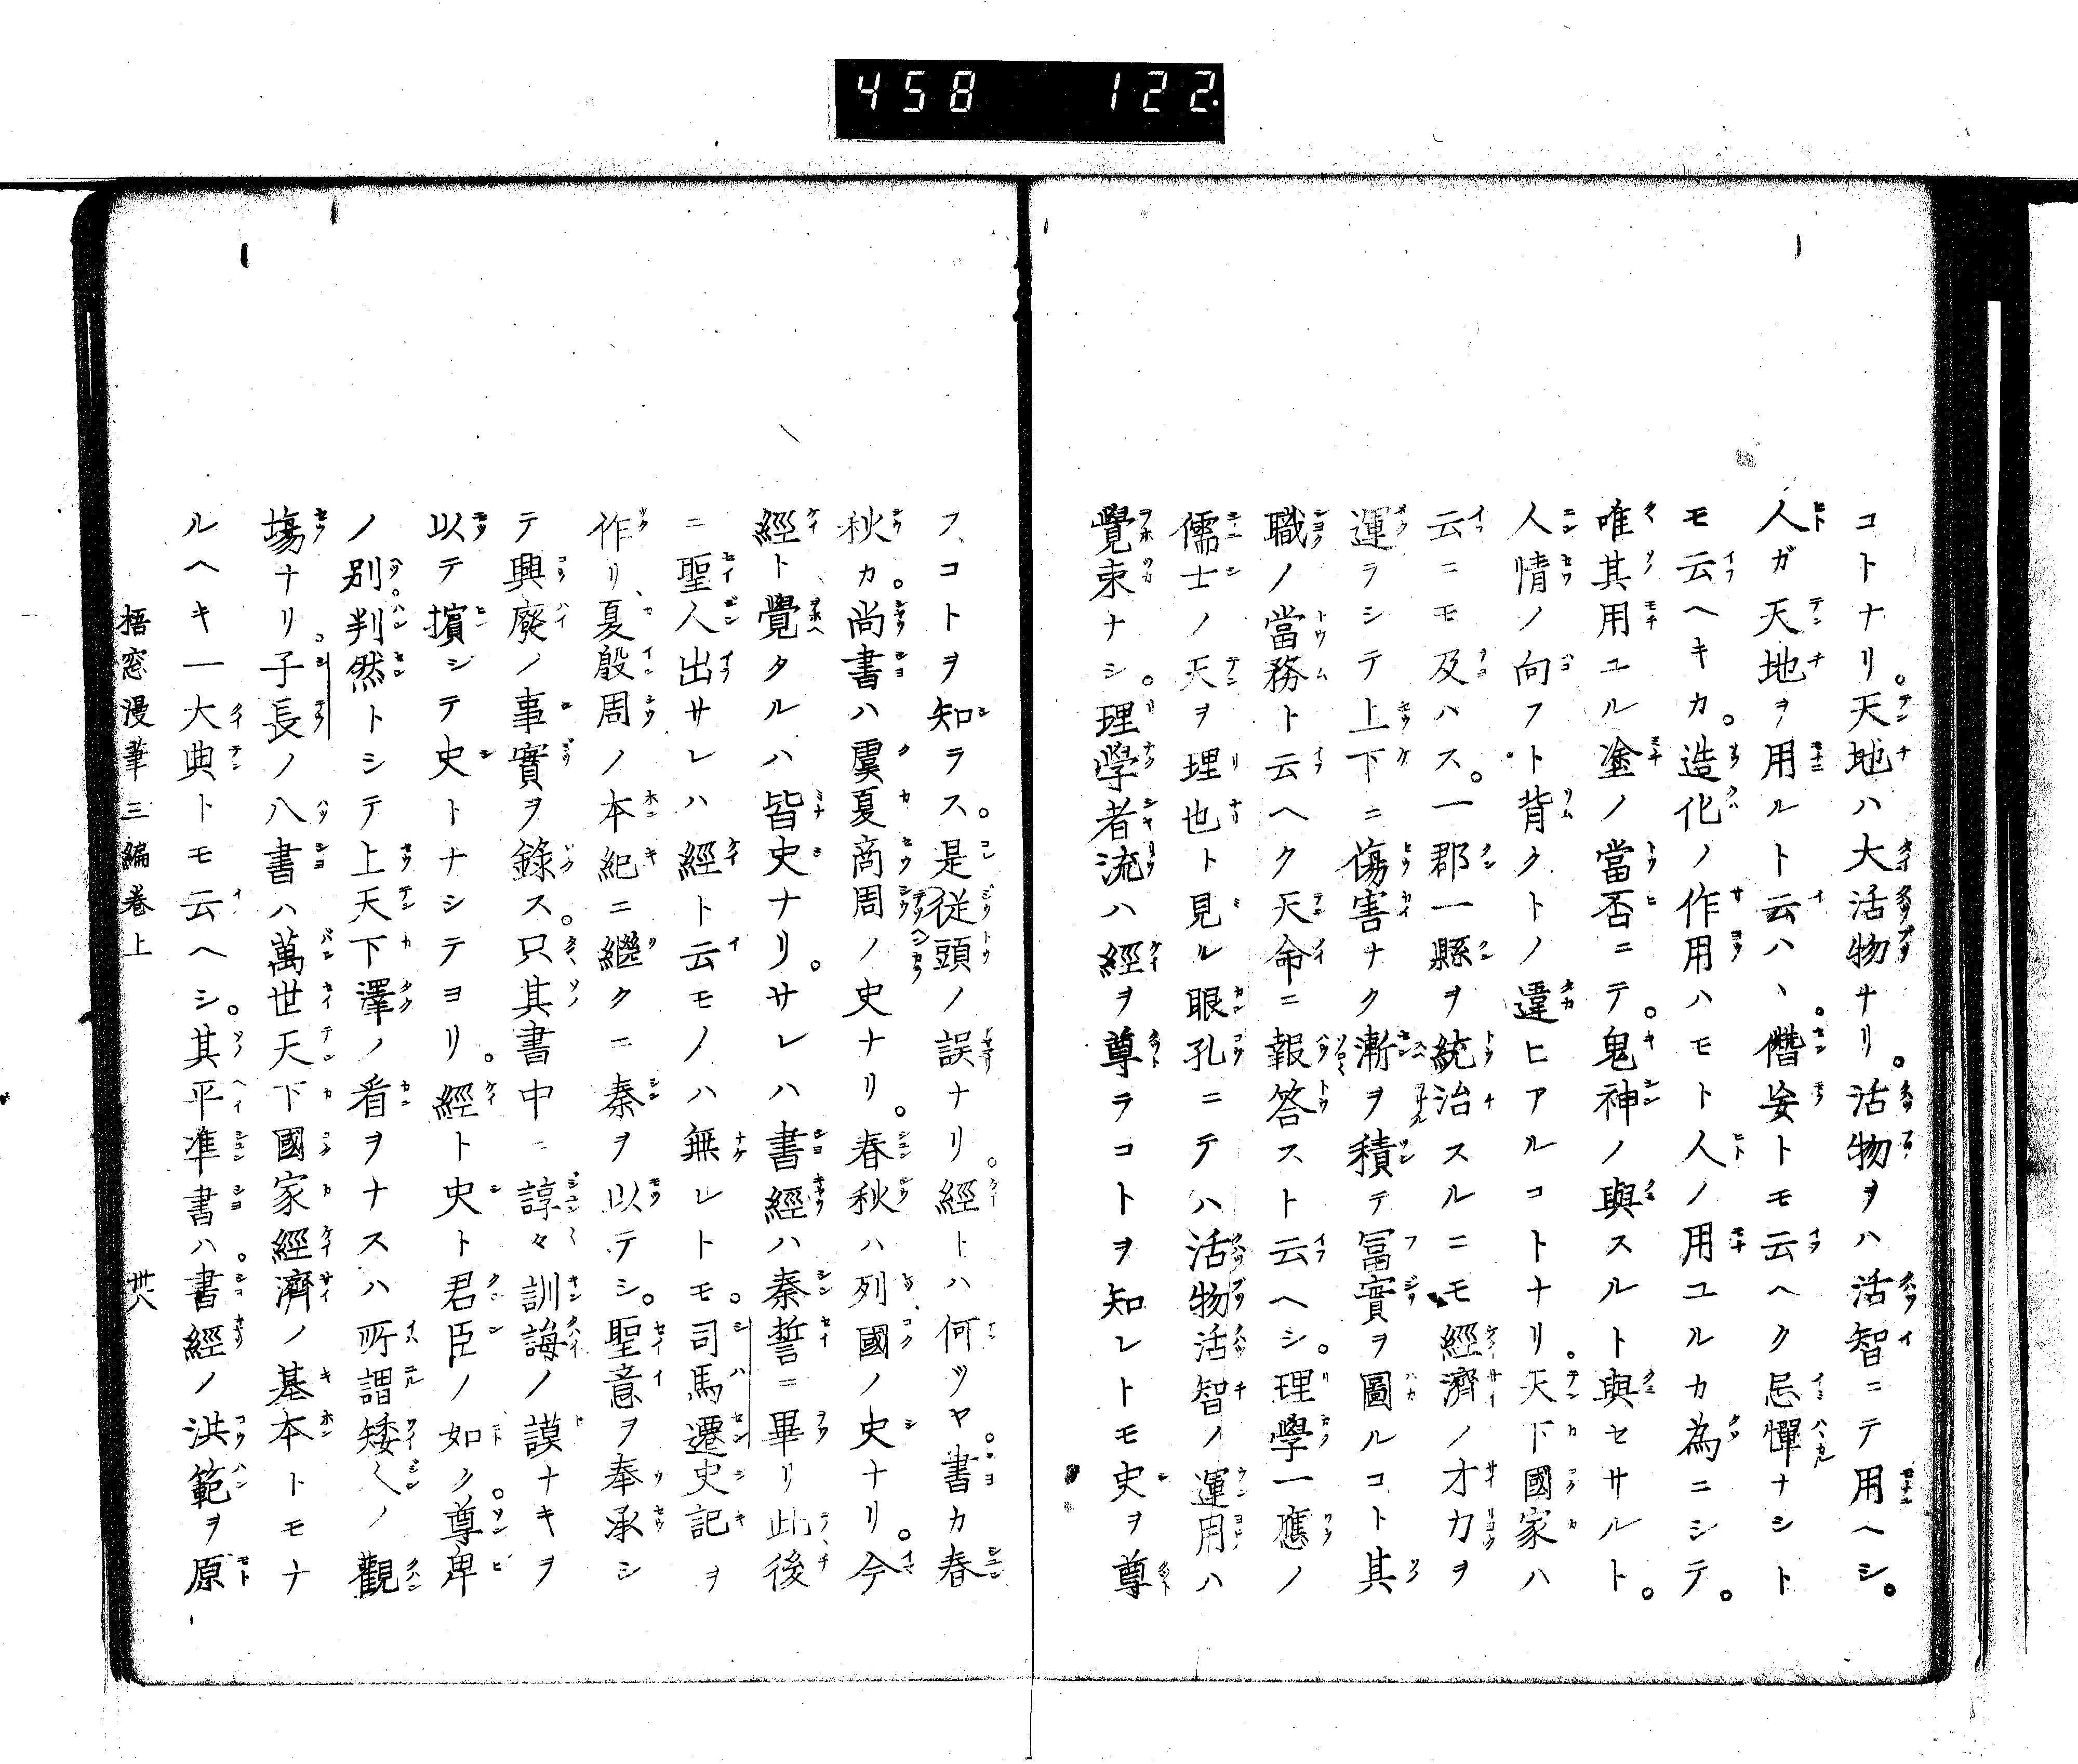 458 122
コトナリ。天地ハ大活物ナリ。活物ヲハ活智ニテ用ヘシ。
人ガ天地ヲ用ルト云ハヽ。僭妄トモ云ヘク忌憚ナシト
モ云ヘキカ。造化ノ作用ハモト人ノ用ユルカ為ニシテ。
唯其用ユル塗ノ當否ニテ。鬼神ノ與スルト與セサルト。
人情ノ向フト背クトノ違ヒアルコトナリ。天下國家ハ
云ニモ及ハス。一郡一縣ヲ統治スルニモ經濟ノ才力ヲ
運ラシテ上下ニ傷害ナク漸ヲ積テ冨實ヲ圖ルコト其
職ノ當務ト云ヘク天命ニ報答スト云ヘシ。理學一應ノ
儒士ノ天ヲ理也ト見ル眼孔ニテハ活物活智ノ運用ハ
覺束ナシ。理學者流ハ經ヲ尊ラコトヲ知レトモ史ヲ尊
フコトヲ知ラス。是従頭ノ誤ナリ。經トハ何ツヤ。書カ春
秋カ。尚書ハ虞夏商周ノ史ナリ。春秋ハ列國ノ史ナリ。今
經ト覺タルハ皆史ナリ。サレハ書經ハ秦誓ニ畢リ此後
ニ聖人出サレハ經ト云モノハ無レトモ。司馬遷史記ヲ
作リ、夏殷周ノ本紀ニ繼クニ秦ヲ以テシ。聖意ヲ奉承シ
テ興廢ノ事實ヲ錄ス。只其書中ニ諄々訓誨ノ謨ナキヲ
以テ擯シテ史トナシテヨリ。經ト史ト君臣ノ如ク。尊卑
ノ別。判然トシテ上天下澤ノ看ヲナスハ所謂矮人ノ觀
塲ナリ。子長ノ八書ハ萬世天下國家經濟ノ基本トモナ
ルヘキ一大典トモ云ヘシ。其平準書ハ書經ノ洪範ヲ原
梧窓漫筆三編巻上 卅八